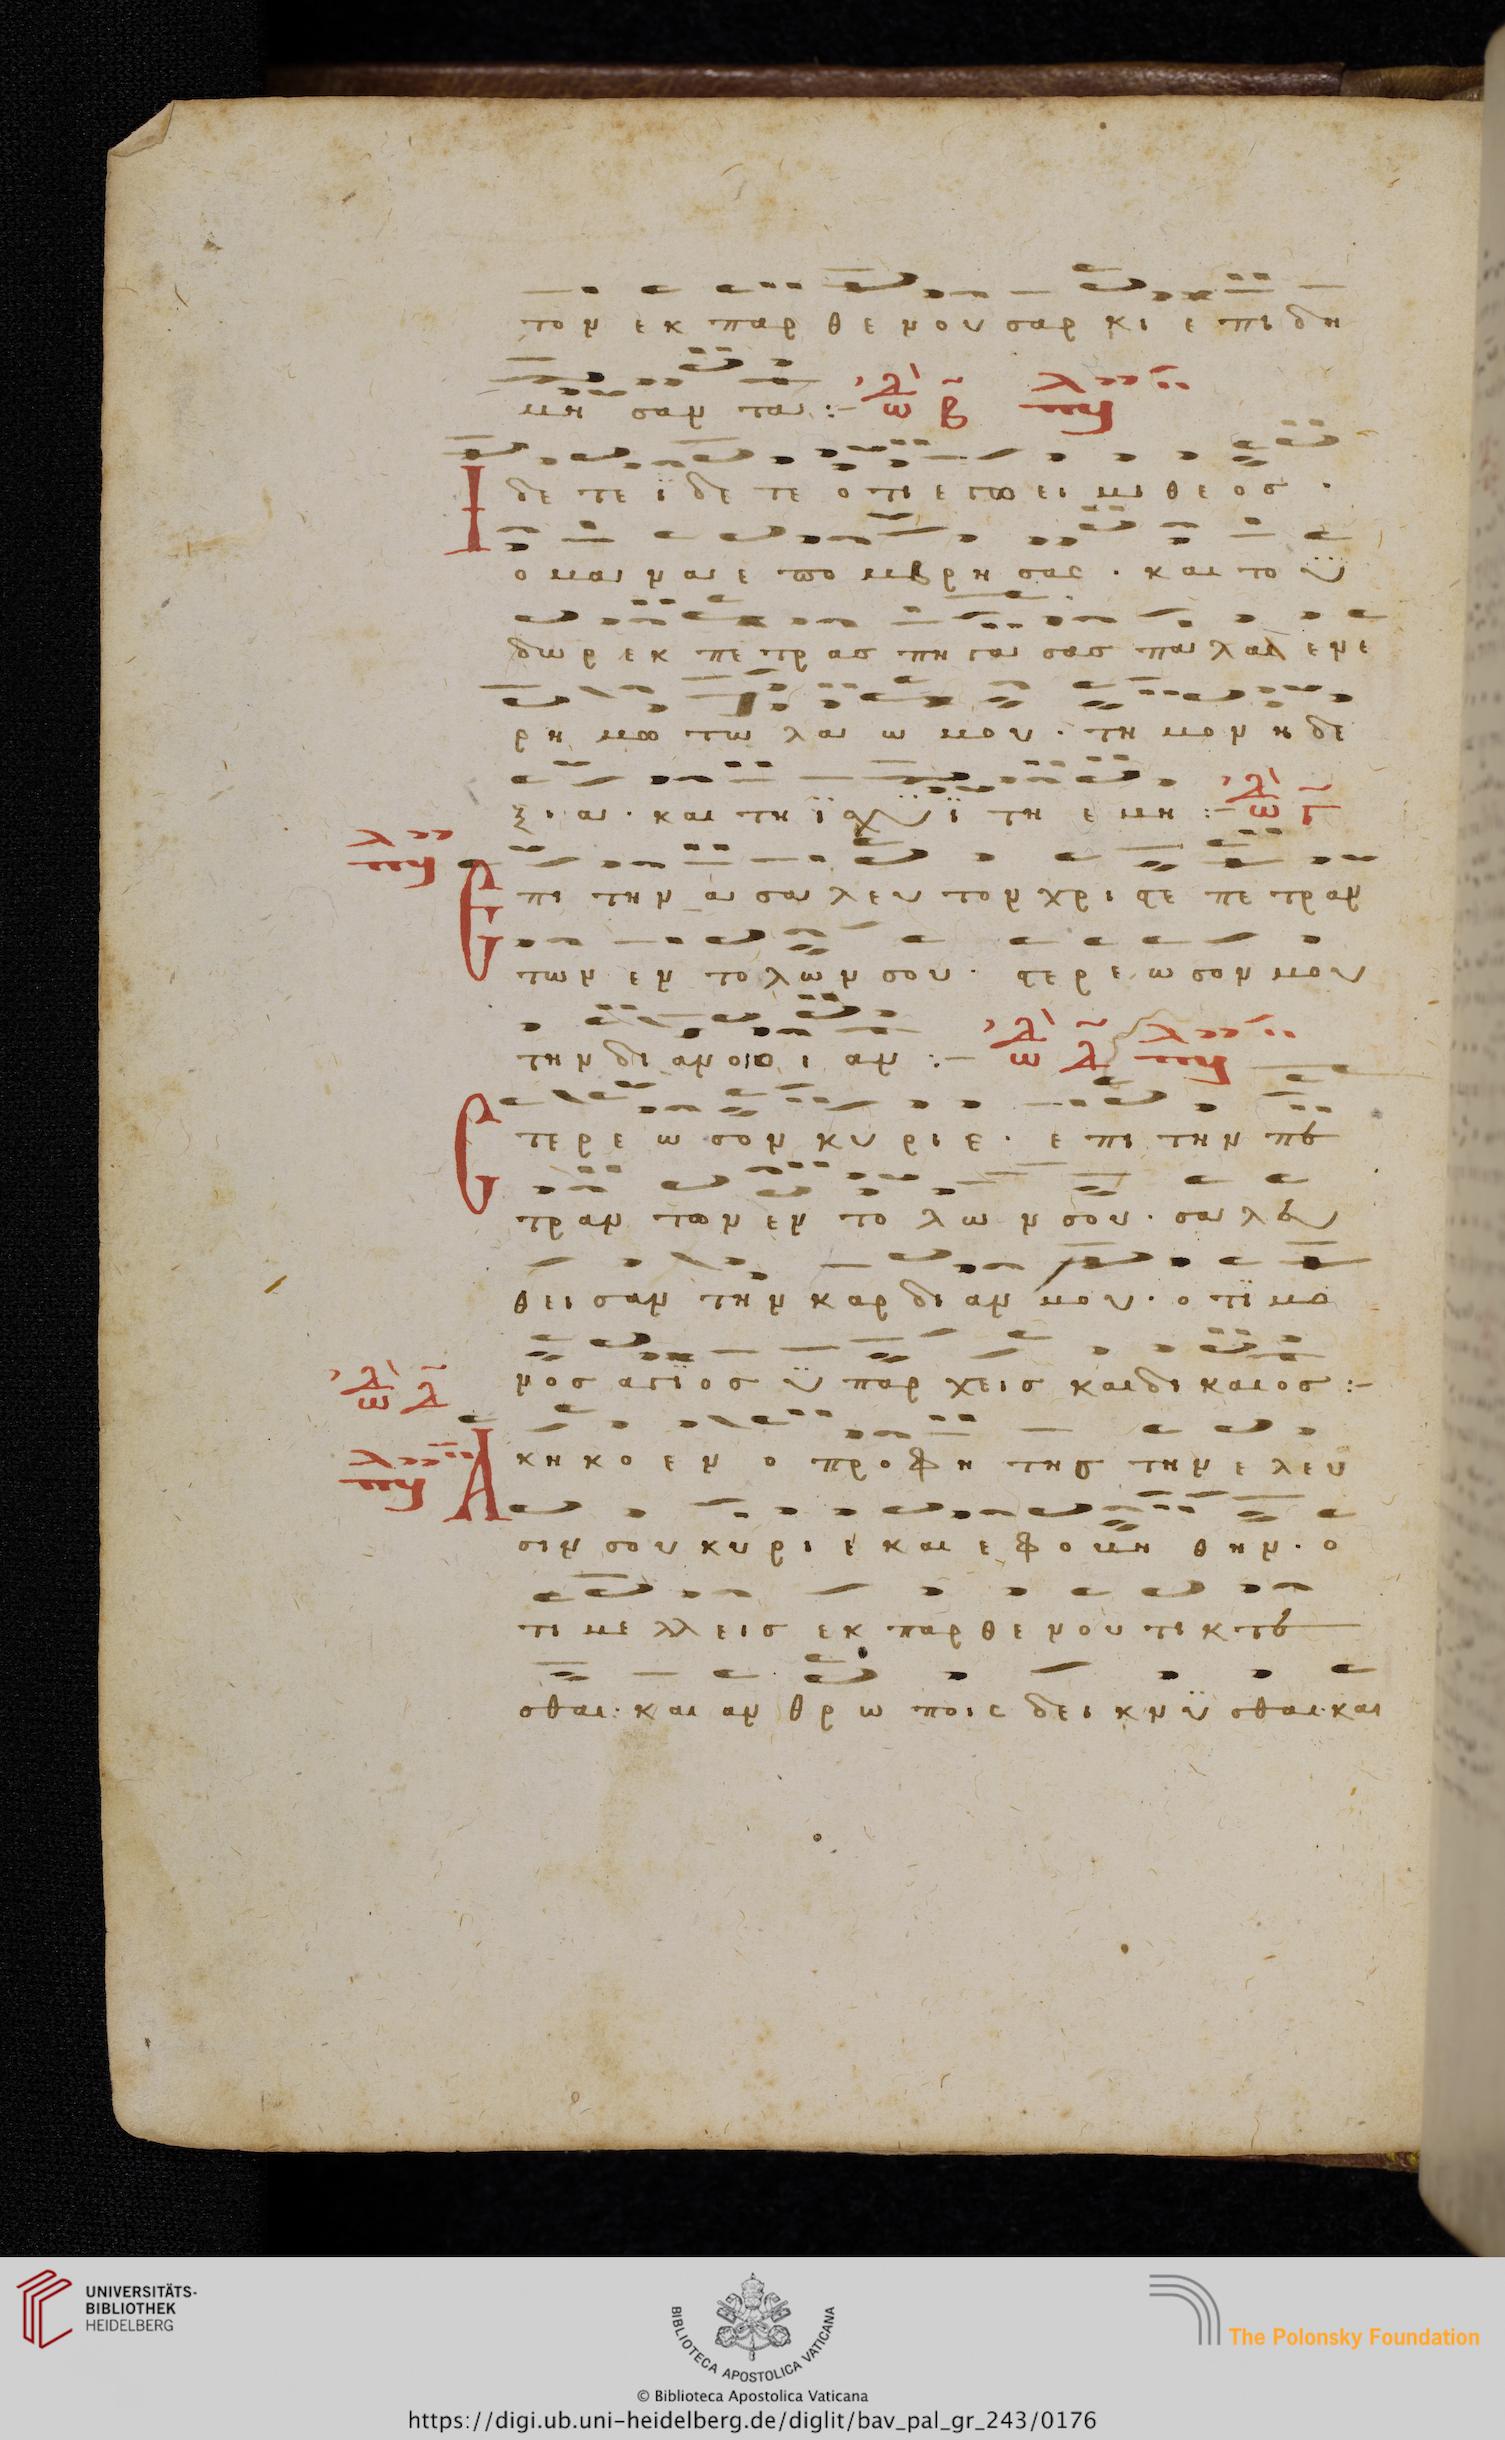 τον εκ παρ θε νου σαρ κι ε πι δη
μη σαν τα :- ᾠδὴ β̃
Ι δε τε ϊ δε τε ο τι ε γω ει μι θε ος ·
ο μαν να ε πο μβρη σας · και το ϋ
δωρ εκ πε τρας πη γα σας πα λαι εν ε
ρη μω τω λα ω μου · τη μον η δε
ξι α · και τη ϊσχυϊ τη ε μη :- ᾠδὴ γ̃
Ε πι την α σα λευ τον χρι στε πε τραν
των εν το λων σου · στε ρε ω σον μου
την δι αν οι αν :- ᾠδὴ δ̃
στε ρε ω σον κυ ρι ε · ε πι την πε
τραν των εν το λων σου · σα λευ
θει σαν την καρ δι αν μου · ο τι μο
νος αγϊος ϋ παρ χεις και δι καιος :-
ᾠδὴ δ̃
Α κη κο εν ο προ φη της την ε λευ
σιν σου κυ ρι ε και ε φο βη θην · ο
τι με λλεις εκ παρ θε νου τι κτε
σθαι · και αν θρω ποις δει κνϋ σθαι και
UNIVERSITÄTS-
BIBLIOTHEK
HEIDELBERG
BIBLIOTECA APOSTOLICA VATICANA
The Polonsky Foundation
© Biblioteca Apostolica Vaticana
https://digi.ub.uni-heidelberg.de/diglit/bav_pal_gr_243/0176